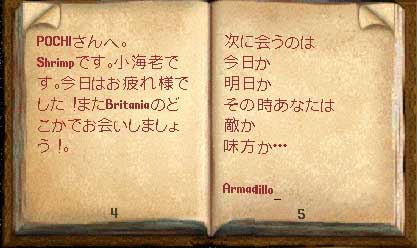 POCHIさんへ。
Shrimpです。小海老で
す。今日はお疲れ様で
した！またBritaniaのど
こかでお会いしましょ
う！。
4
次に会うのは
今日か
明日か
その時あなたは
敵か
味方か…
Armadillo_
5